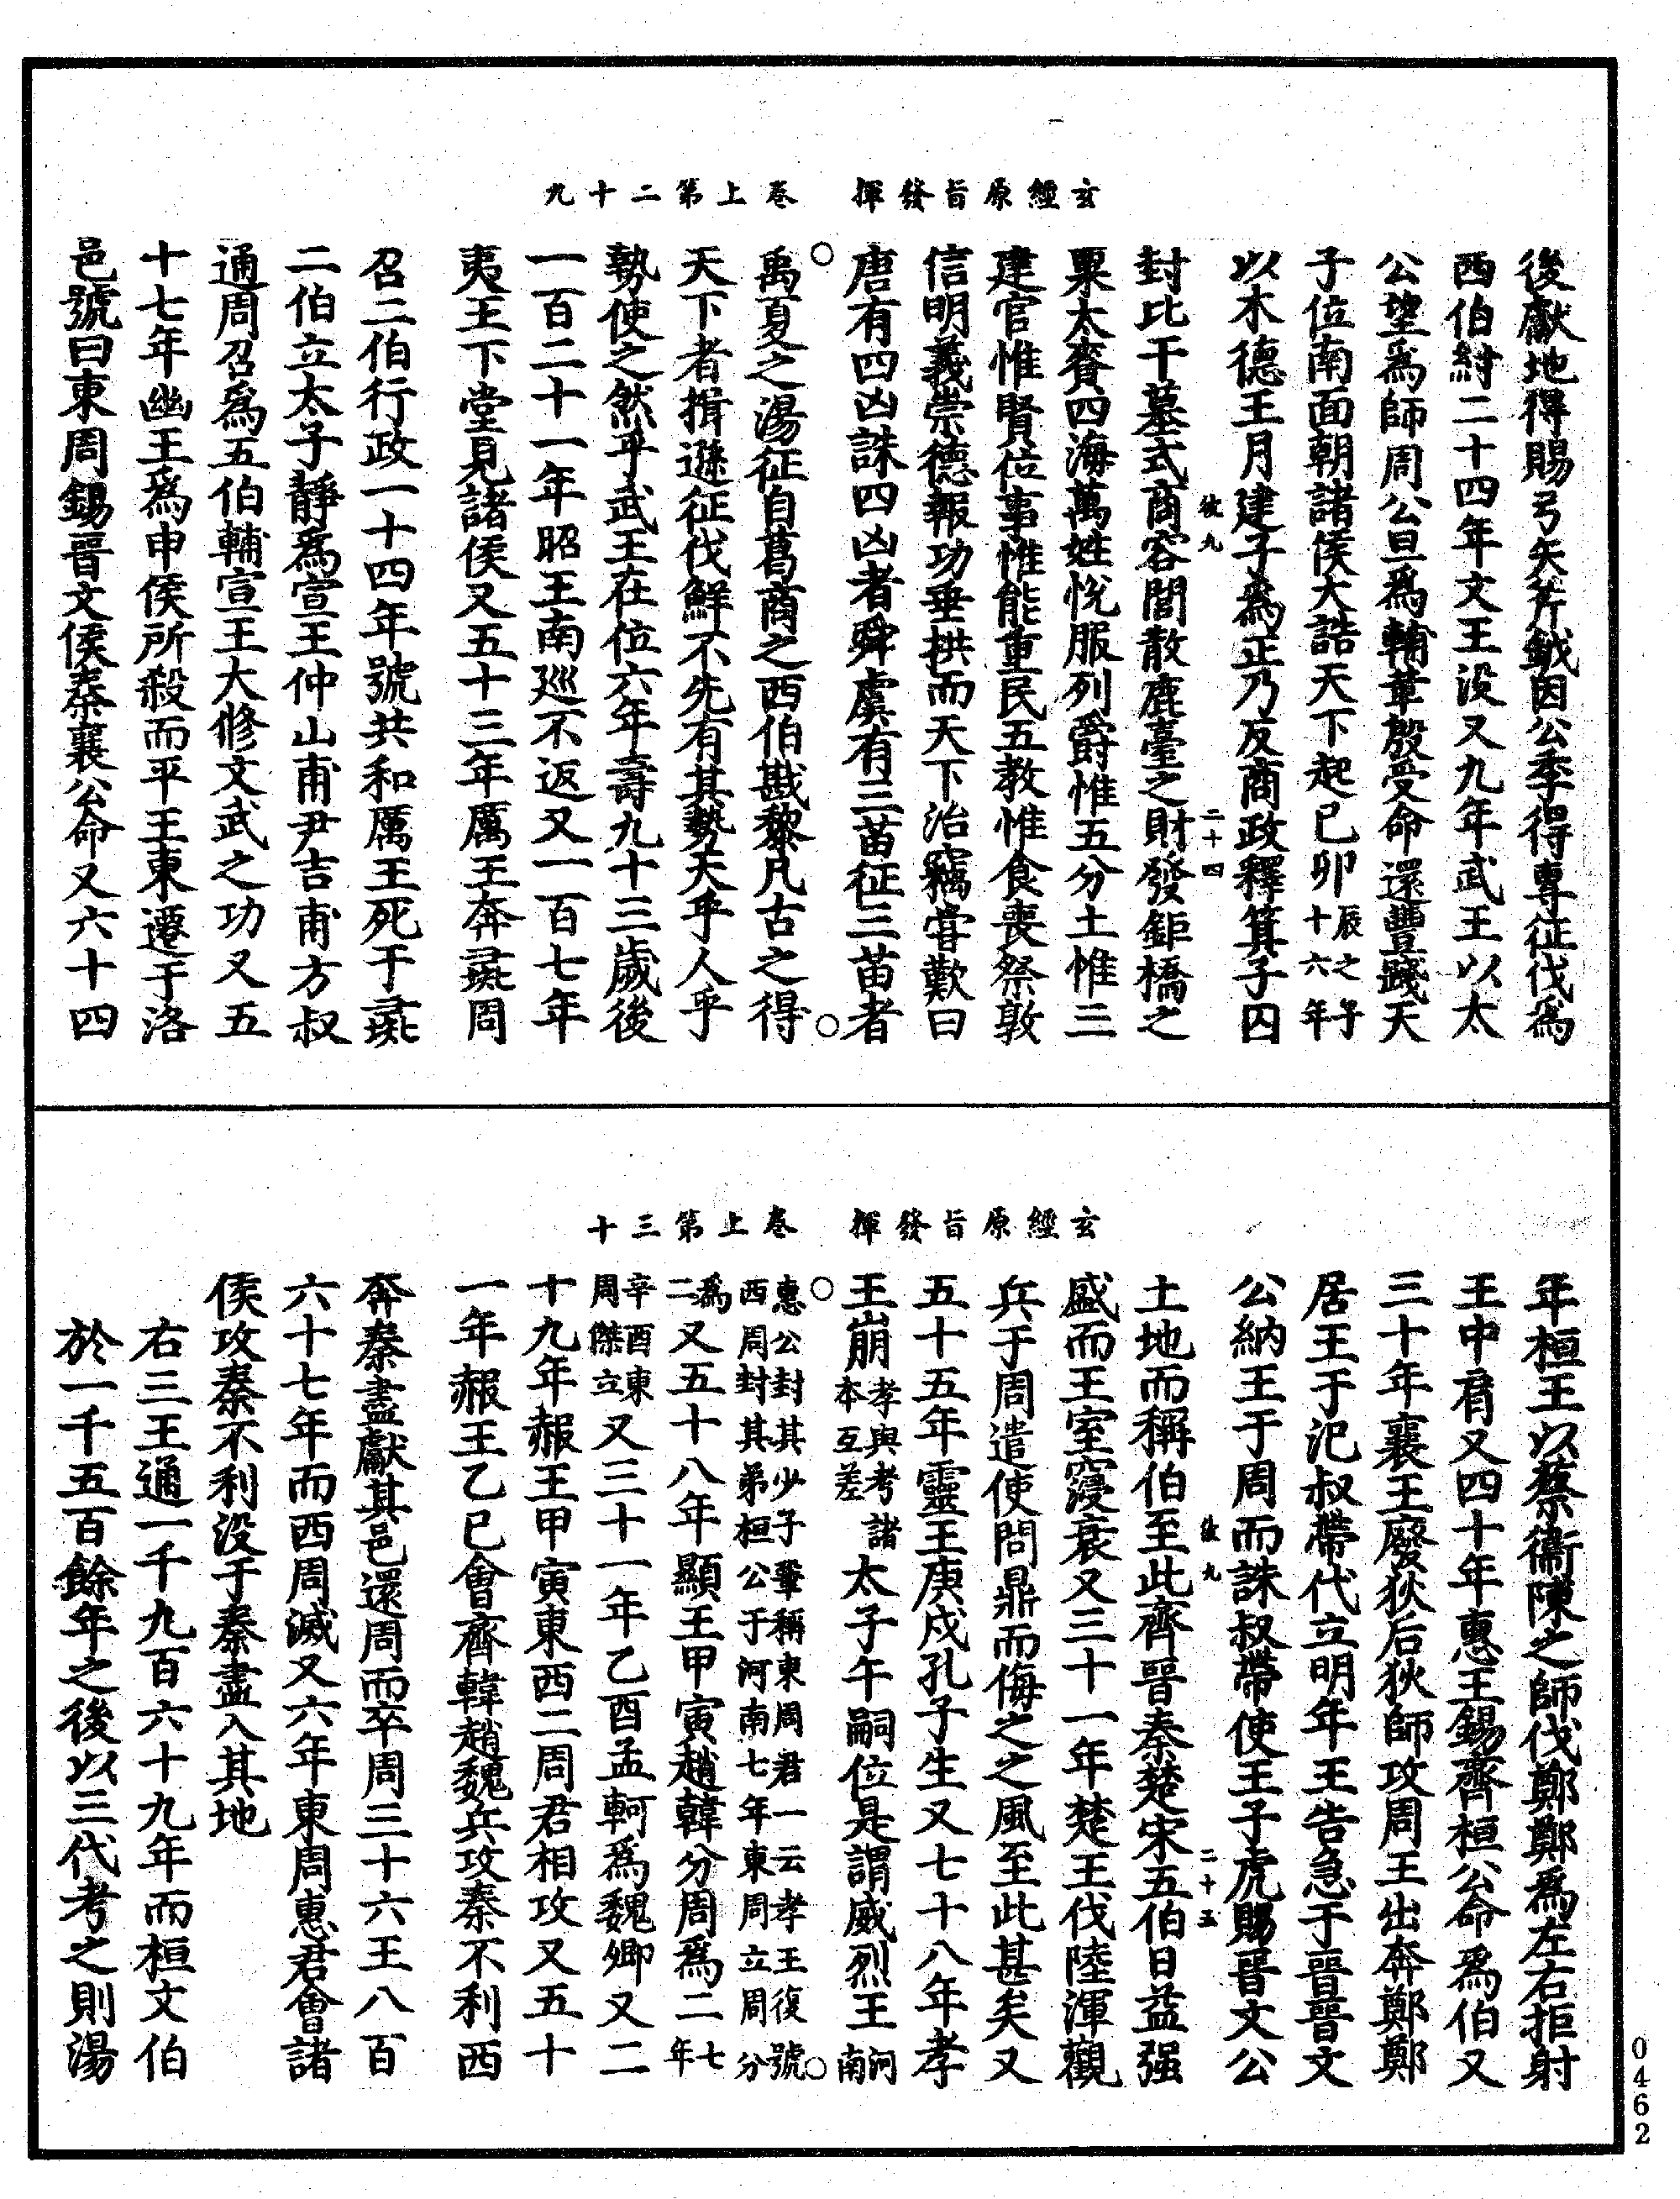 玄經原旨發揮　卷上第二十九
後獻地得賜弓矢斧鉞因公季得專征伐爲
西伯紂二十四年文王没又九年武王以太
公望爲師周公旦爲輔革殷受命還豐踐天
子位南面朝諸侯大誥天下起己卯辰之子十六年
以木德王月建子爲正乃反商政釋箕子囚
封比干墓式商容閭散鹿臺之財發鉅橋之
粟太賚四海萬姓悅服列爵惟五分土惟三
建官惟賢位事惟能重民五教惟食喪祭敦
信明義崇德報功垂拱而天下治竊嘗歎曰
唐有四凶誅四凶者舜虞有三苗征三苗者
禹夏之湯征自葛商之西伯戡黎凡古之得
天下者揖遜征伐鮮不先有其勢天乎人乎
勢使之然乎武王在位六年壽九十三歲後
一百二十一年昭王南巡不返又一百七年
夷王下堂見諸侯又五十三年厲王奔彘周
召二伯行政一十四年號共和厲王死于彘
二伯立太子靜爲宣王仲山甫尹吉甫方叔
通周召爲五伯輔宣王大修文武之功又五
十七年幽王爲申侯所殺而平王東遷于洛
邑號曰東周錫晉文侯秦襄公命又六十四
玄經原旨發揮　卷上第三十
年桓王以蔡衞陳之師伐鄭鄭爲左右拒射
王中肩又四十年惠王錫齊桓公命爲伯又
三十年襄王廢狄后狄師攻周王出奔鄭鄭
居王于汜叔帶代立明年王告急于晉晉文
公納王于周而誅叔帶使王子虎賜晉文公
土地而稱伯至此齊晉秦楚宋五伯日益强
盛而王室寖衰又三十一年楚王伐陸渾觀
兵于周遣使問鼎而侮之之風至此甚矣又
五十五年靈王庚戌孔子生又七十八年孝
王崩孝與考諸本互差太子午嗣位是謂威烈王河南
惠公封其少子鞏稱東周君一云孝王復號西周封其弟桓公于河南七年東周立周分
爲二又五十八年顯王甲寅趙韓分周爲二七年
辛酉東周傑立又三十一年乙酉孟軻爲魏卿又二
十九年赧王甲寅東西二周君相攻又五十
一年赧王乙巳會齊韓趙魏兵攻秦不利西
奔秦盡獻其邑還周而卒周三十六王八百
六十七年而西周滅又六年東周惠君會諸
侯攻秦不利没于秦秦盡入其地
右三王通一千九百六十九年而桓文伯
於一千五百餘年之後以三代考之則湯
彼九
二十四
彼九
二十五
0462